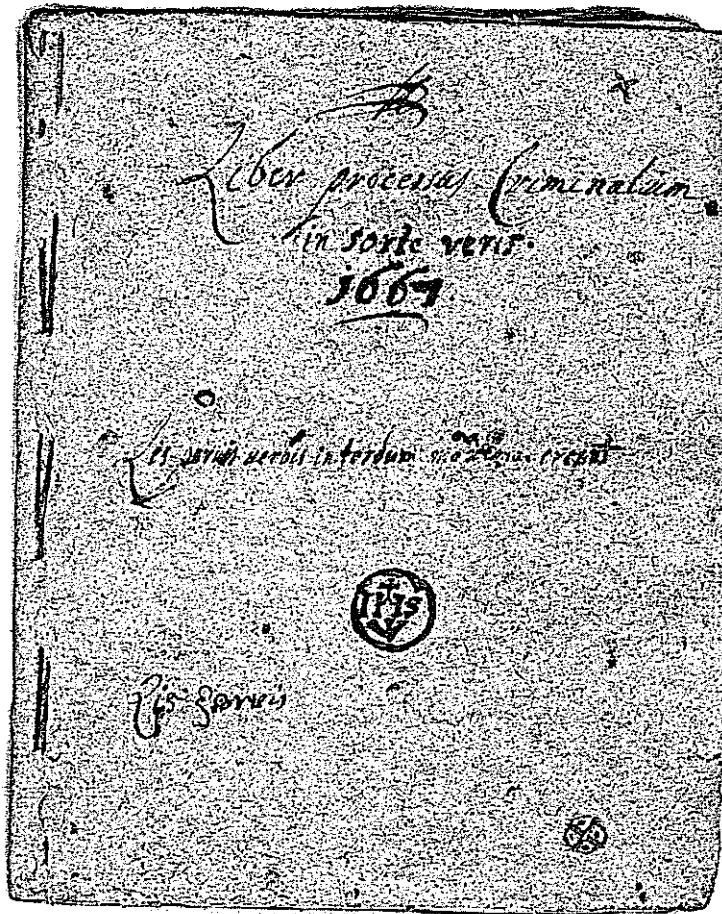 Liber processus Criminalium
in sorte veris.
1667.
Lis paruis uerbis interdum crescit
IHS
Lis paruis